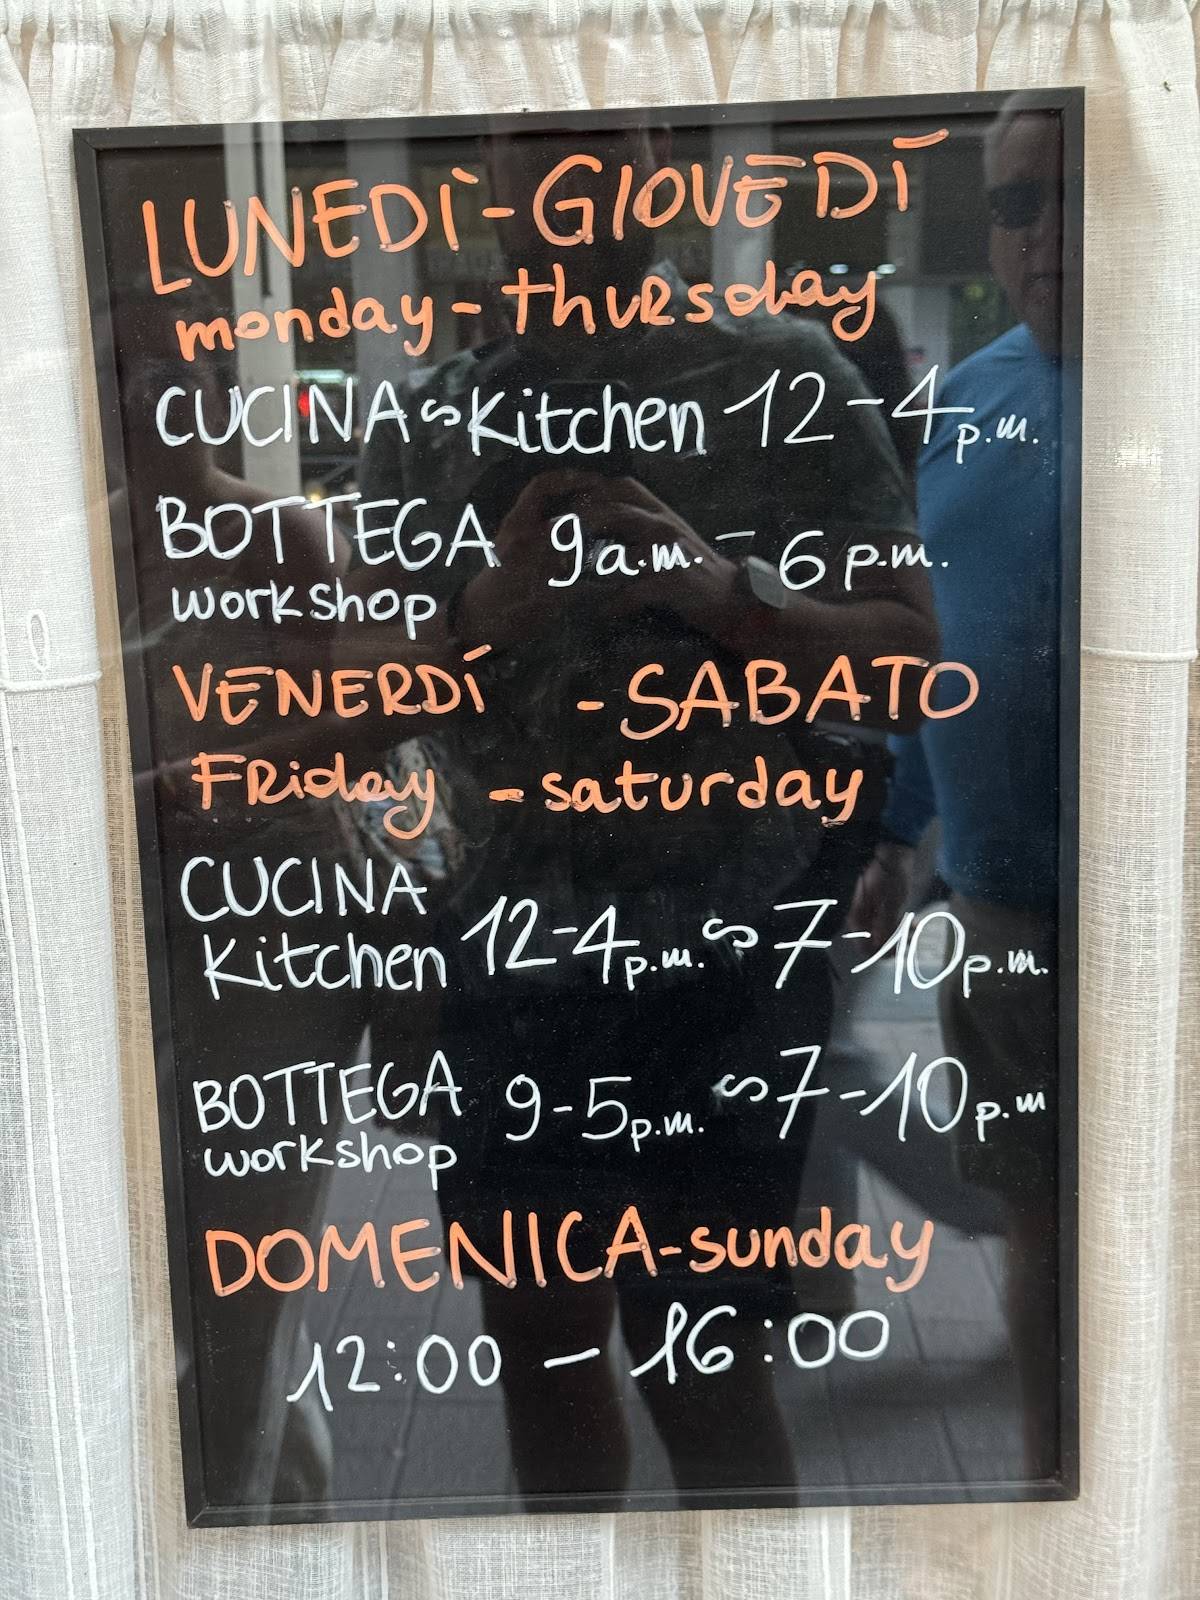 LUNEDÌ - GIOVEDÍ
monday - thursday
CUCINA ~ Kitchen 12 - 4 p.m.
BOTTEGA 9 a.m. - 6 p.m.
workshop
VENERDÍ - SABATO
Friday - saturday
CUCINA
Kitchen 12 - 4 p.m. ~ 7 - 10 p.m.
BOTTEGA 9 - 5 p.m. ~ 7 - 10 p.m
workshop
DOMENICA - sunday
12:00 - 16:00